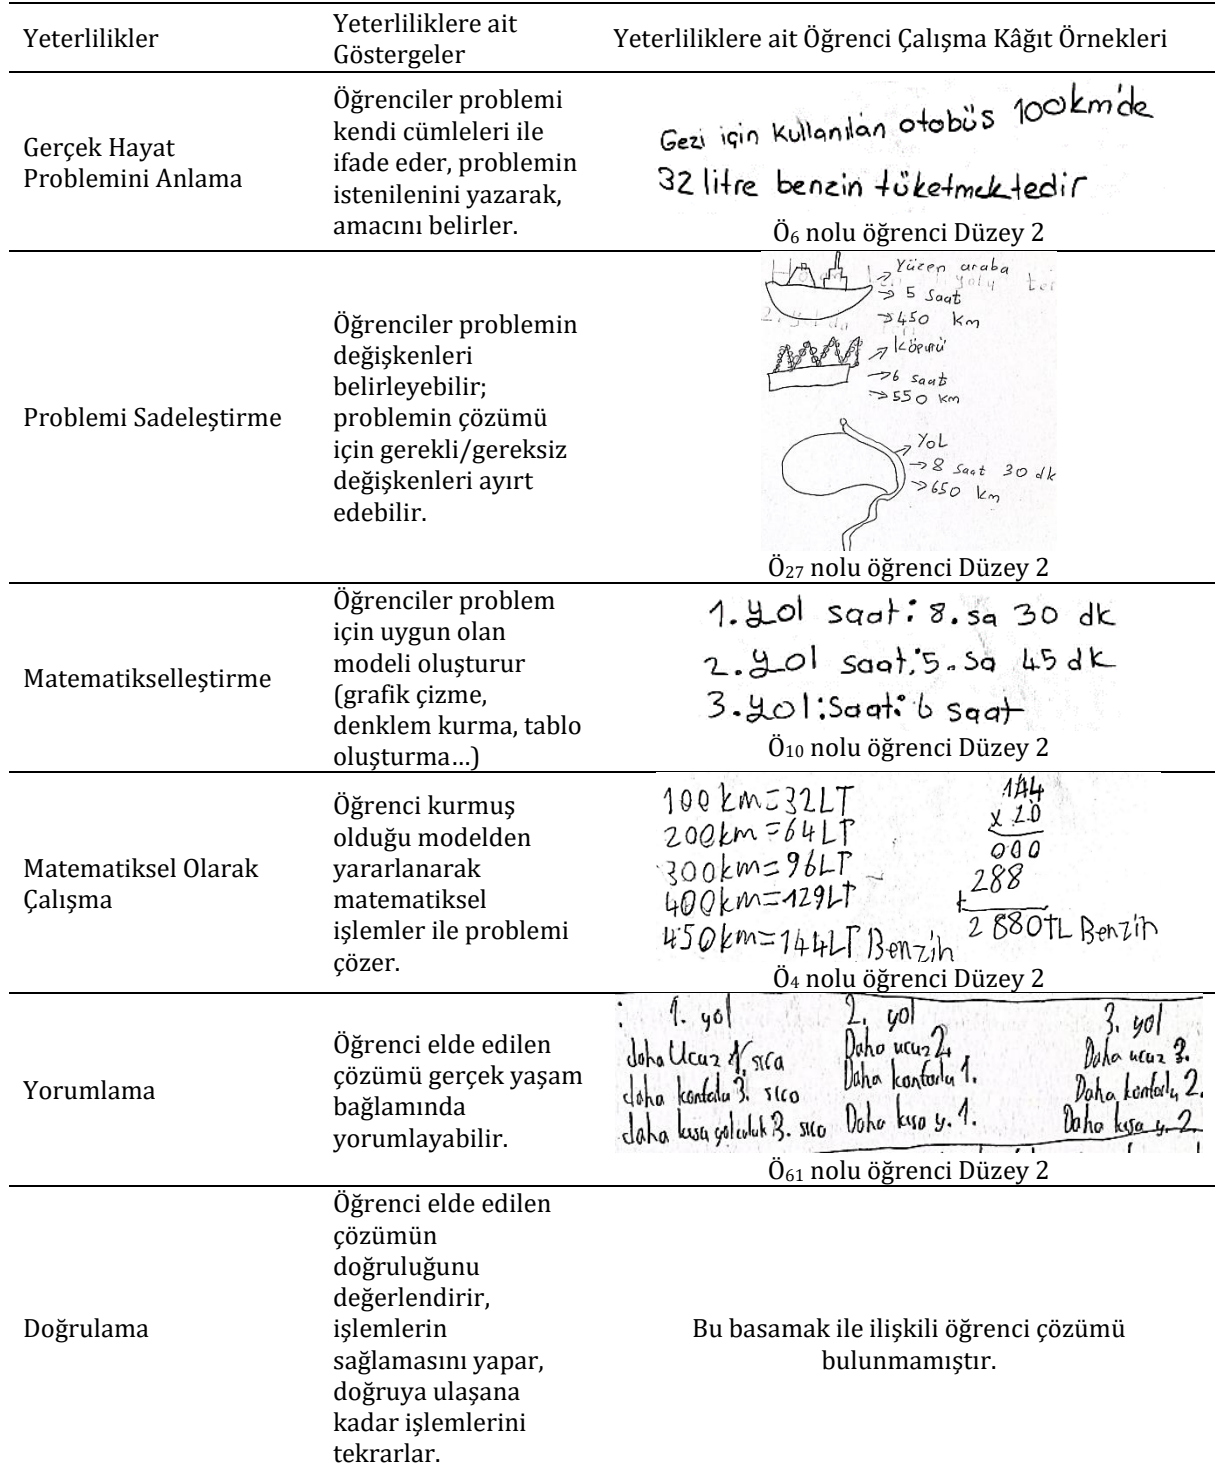 Yeterlilikler
Yeterliliklere ait
Göstergeler
Yeterliliklere ait Öğrenci Çalışma Kâğıt Örnekleri
Gerçek Hayat
Problemini Anlama
Öğrenciler problemi
kendi cümleleri ile
ifade eder, problemin
istenilenini yazarak,
amacını belirler.
Gezi için kullanılan otobüs 100km'de
32 litre benzin tüketmektedir
Ö6 nolu öğrenci Düzey 2
Problemi Sadeleştirme
Öğrenciler problemin
değişkenleri
belirleyebilir;
problemin çözümü
için gerekli/gereksiz
değişkenleri ayırt
edebilir.
Yüzen araba
→ 5 saat
→450 km
Köprü
→6 saat
→550 km
YOL
→8 saat 30 dk
→650 km
Ö27 nolu öğrenci Düzey 2
Matematikselleştirme
Öğrenciler problem
için uygun olan
modeli oluşturur
(grafik çizme,
denklem kurma, tablo
oluşturma…)
1. yol saat: 8. sa 30 dk
2. yol saat: 5. sa 45 dk
3. yol: Saat: 6 saat
Ö10 nolu öğrenci Düzey 2
Matematiksel Olarak
Çalışma
Öğrenci kurmuş
olduğu modelden
yararlanarak
matematiksel
işlemler ile problemi
çözer.
100km=32LT
200km=64LT
300km=96LT
400km=129LT
450km=144LT Benzin
144
x 20
000
288
+
2880TL Benzin
Ö4 nolu öğrenci Düzey 2
Yorumlama
Öğrenci elde edilen
çözümü gerçek yaşam
bağlamında
yorumlayabilir.
1. yol
daha Ucuz 1. sıra
daha konforlu 3. sıra
daha kısa yolculuk 3. sıra
2. yol
Daha ucuz 2.
Daha konforlu 1.
Daha kısa y. 1.
3. yol
Daha ucuz 3.
Daha konforlu 2.
Daha kısa y. 2
Ö61 nolu öğrenci Düzey 2
Doğrulama
Öğrenci elde edilen
çözümün
doğruluğunu
değerlendirir,
işlemlerin
sağlamasını yapar,
doğruya ulaşana
kadar işlemlerini
tekrarlar.
Bu basamak ile ilişkili öğrenci çözümü
bulunmamıştır.